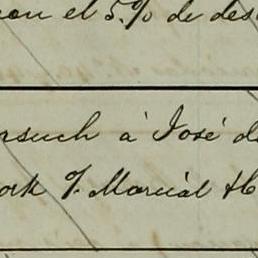 con el 5% de des
rsuch á José d
ork %. Marcial & C